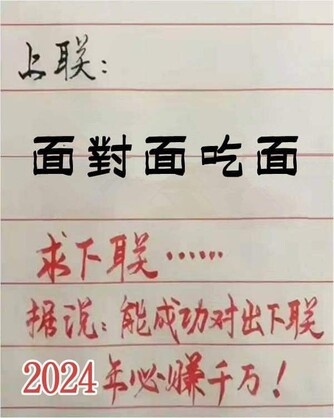 上联：
面對面吃面
求下联……
据说：能成功对出下联
2024年必赚千万！